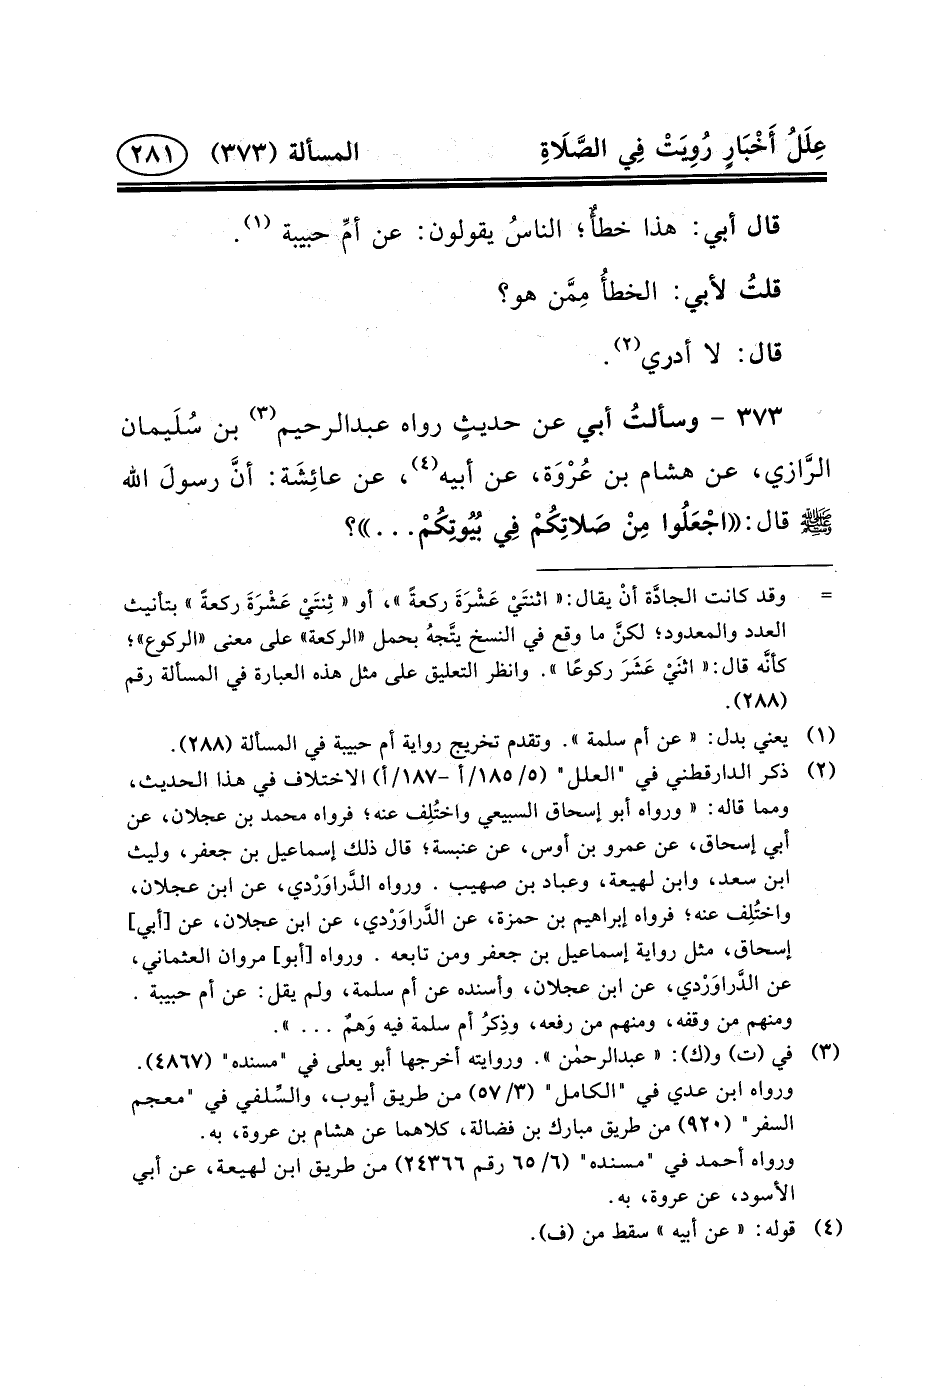 عِلَلُ أَخْبَارٍ رُوِيَتْ فِي الصَّلَاةِ المسألة (٣٧٣) ٢٨١
قال أبي: هذا خطأٌ؛ الناسُ يقولون: عن أمِّ حبيبة (١).
قلتُ لأبي: الخطأُ مِمَّن هو؟
قال: لا أدري(٢).
٣٧٣ - وسألتُ أبي عن حديثٍ رواه عبدالرحيم(٣) بن سُلَيمان
الرَّازي، عن هشام بن عُرْوَة، عن أبيه(٤)، عن عائِشَة: أنَّ رسولَ الله
ﷺ قال: ((اجْعَلُوا مِنْ صَلاتِكُمْ فِي بُيُوتِكُمْ...))؟
= وقد كانت الجادَّة أنْ يقال: « اثنتَيْ عَشْرَةَ ركعةً »، أو « ثِنتَيْ عَشْرَةَ ركعةً » بتأنيث
العدد والمعدود؛ لكنَّ ما وقع في النسخ يتَّجهُ بحمل «الركعة» على معنى «الركوع»؛
كأنَّه قال: « اثنَيْ عَشَرَ ركوعًا ». وانظر التعليق على مثل هذه العبارة في المسألة رقم
(٢٨٨).
(١) يعني بدل: « عن أم سلمة ». وتقدم تخريج رواية أم حبيبة في المسألة (٢٨٨).
(٢) ذكر الدارقطني في "العلل" (٥/ ١٨٥/أ -١٨٧/أ) الاختلاف في هذا الحديث،
ومما قاله: « ورواه أبو إسحاق السبيعي واختُلِف عنه؛ فرواه محمد بن عجلان، عن
أبي إسحاق، عن عمرو بن أوس، عن عنبسة؛ قال ذلك إسماعيل بن جعفر، وليث
ابن سعد، وابن لهيعة، وعباد بن صهيب . ورواه الدَّراوَرْدي، عن ابن عجلان،
واختُلِف عنه؛ فرواه إبراهيم بن حمزة، عن الدَّراوَرْدي، عن ابن عجلان، عن [أبي]
إسحاق، مثل رواية إسماعيل بن جعفر ومن تابعه . ورواه [أبو] مروان العثماني،
عن الدَّراوَرْدي، عن ابن عجلان، وأسنده عن أم سلمة، ولم يقل: عن أم حبيبة .
ومنهم من وقفه، ومنهم من رفعه، وذِكرُ أم سلمة فيه وَهمٌ ... ».
(٣) في (ت) و(ك): « عبدالرحمٰن ». وروايته أخرجها أبو يعلى في "مسنده" (٤٨٦٧).
ورواه ابن عدي في "الكامل" (٥٧/٣) من طريق أيوب، والسِّلفي في "معجم
السفر" (٩٢٠) من طريق مبارك بن فضالة، كلاهما عن هشام بن عروة، به.
ورواه أحمد في "مسنده" (٦/ ٦٥ رقم ٢٤٣٦٦) من طريق ابن لهيعة، عن أبي
الأسود، عن عروة، به.
(٤) قوله: « عن أبيه » سقط من (ف).